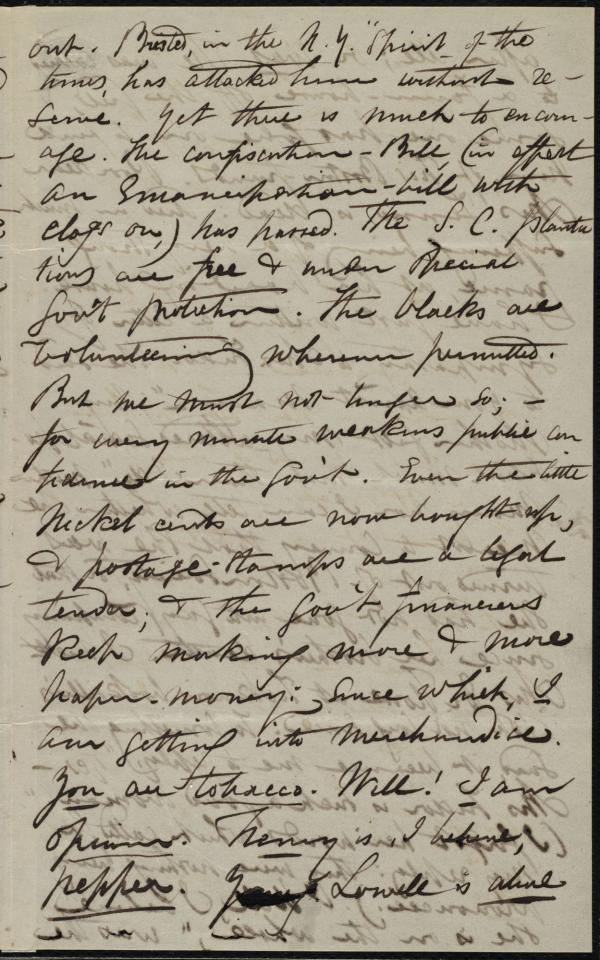 out. Bristed, in the N.Y. "Spirit of the
times, has attacked him without re-
serve. Yet there is much to encour-
age. The confiscation-Bill, (in effect
an Emancipation-bill with
clogs on,) has passed. The S. C. planta
tions are free & under special
Gov't protection. The blacks are
volunteering wherever permitted.
But we must not linger so; -
for every minute weakens public con
fidence in the Gov't. Even the little
Nickel cents are now bought up,
& postage-stamps are a legal
tender; & the Gov't financiers
keep making more & more
paper-money: Since which, I
am getting into merchandice.
You are tobacco. Will! I am
opium. Henry is, I believe,
pepper. Lowell is